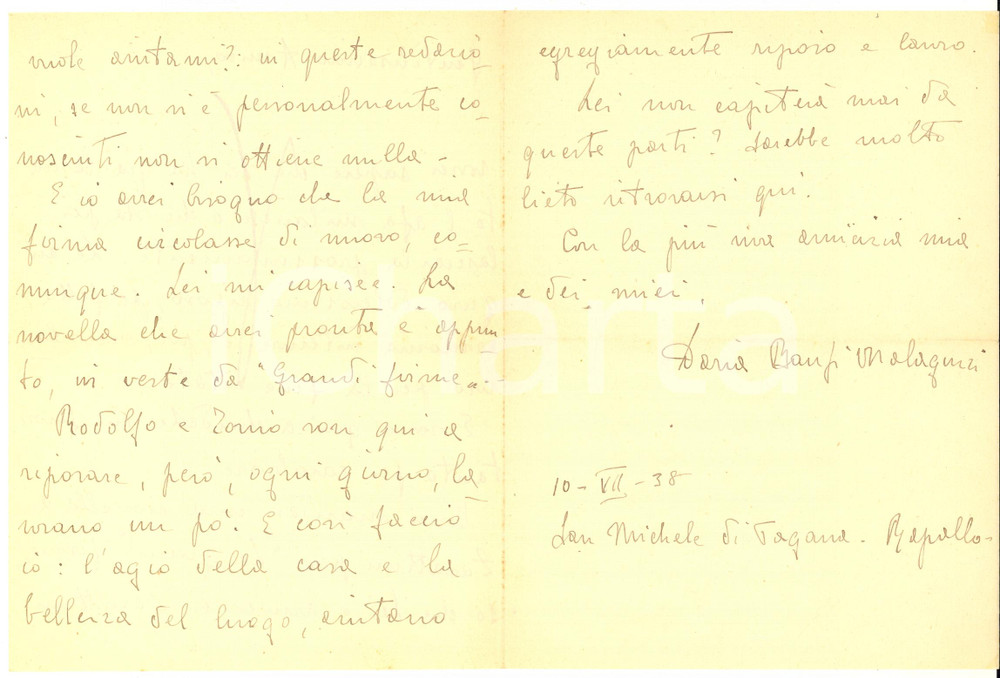 vuole aiutarmi?: in queste redazio
ni, se non si è personalmente co_
nosciuti non si ottiene nulla -
E io avrei bisogno che la mia
firma circolasse di nuovo, co=
munque. Lei mi capisce. La
novella che avrei pronta è appun_
to, in veste da "Grandi firme".-
Rodolfo e Tonio son qui a
riposare, però, ogni giorno, la_
vorano un po'. E così faccio
io: l'agio della casa e la
bellezza del luogo, aiutano
egregiamente riposo e lavoro.
Lei non capiterà mai da
queste parti? Sarebbe molto
lieto ritrovarsi qui.
Con la più viva amicizia mia
e dei miei.
Daria Banfi Malaguzzi
10-VII-38
San Michele di Pagana. Rapallo-
iCharta